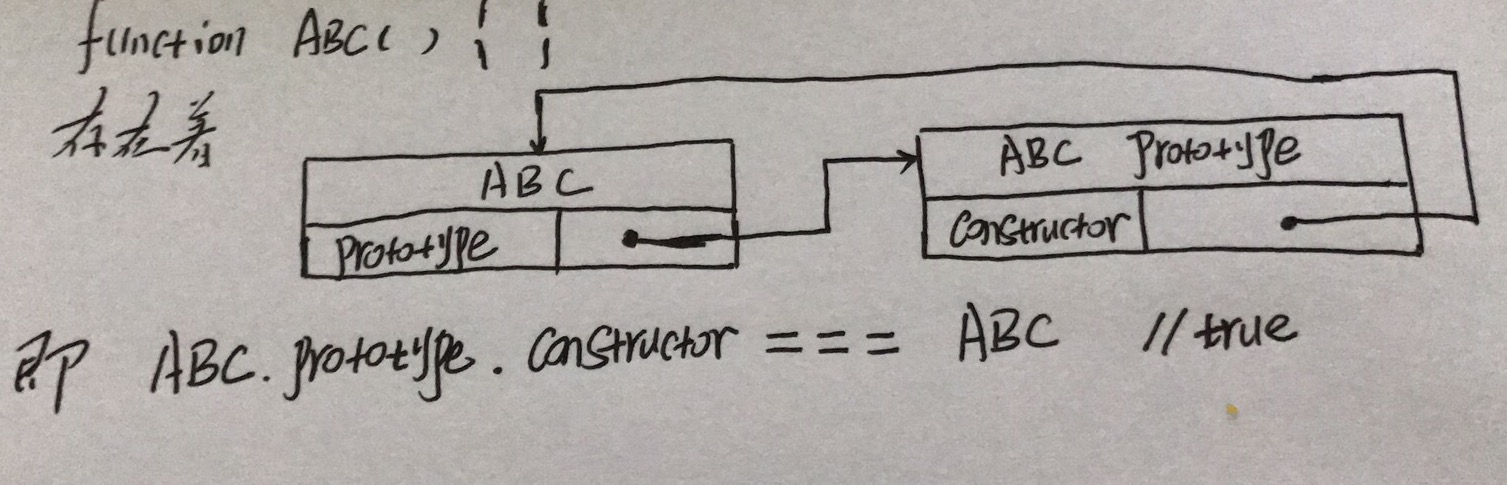 function ABC() { }
存在着
ABC
prototype
ABC prototype
constructor
即 ABC.prototype.constructor === ABC //true